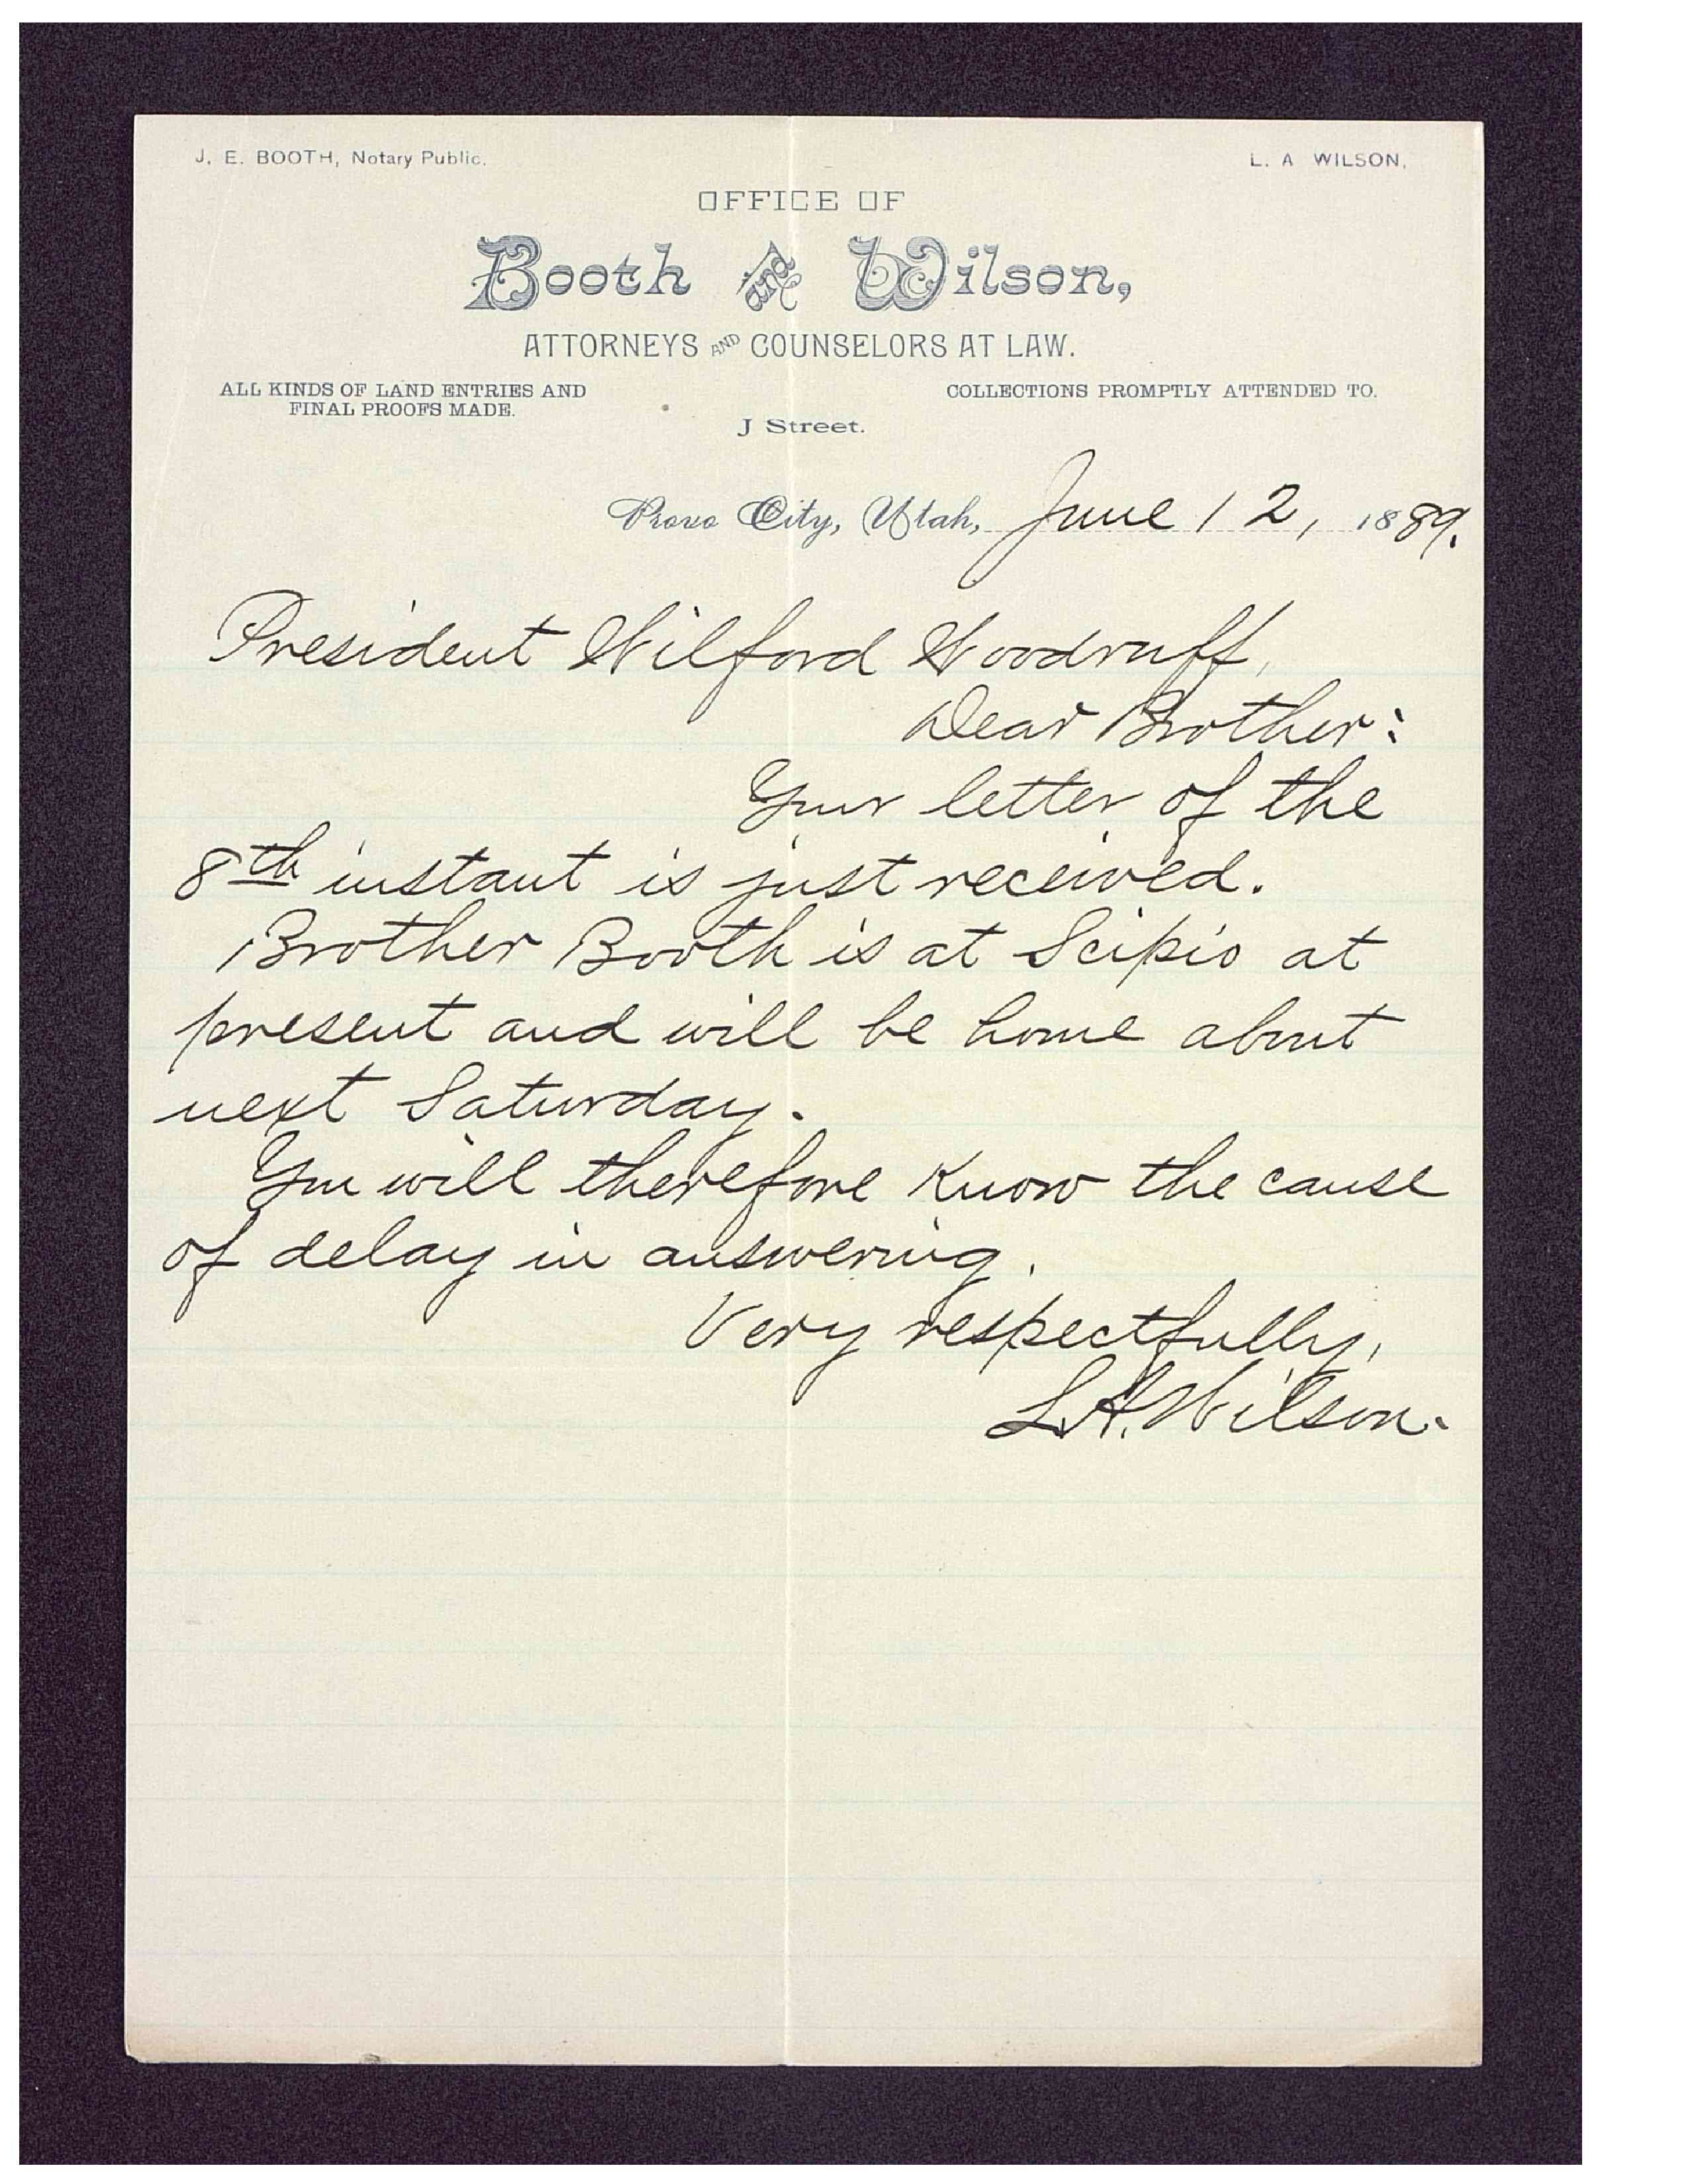 J. E. BOOTH, Notary Public.
L. A WILSON,
OFFICE OF
Booth and Wilson,
ATTORNEYS AND COUNSELORS AT LAW.
ALL KINDS OF LAND ENTRIES AND
FINAL PROOFS MADE.
COLLECTIONS PROMPTLY ATTENDED TO.
J Street.
Provo City, Utah, June 12, 1889.
President Wilford Woodruff,
Dear Brother:
Your letter of the
8th instant is just received.
Brother Booth is at Scipio at
present and will be home about
next Saturday.
You will therefore know the cause
of delay in answering.
Very respectfully,
L.A. Wilson.